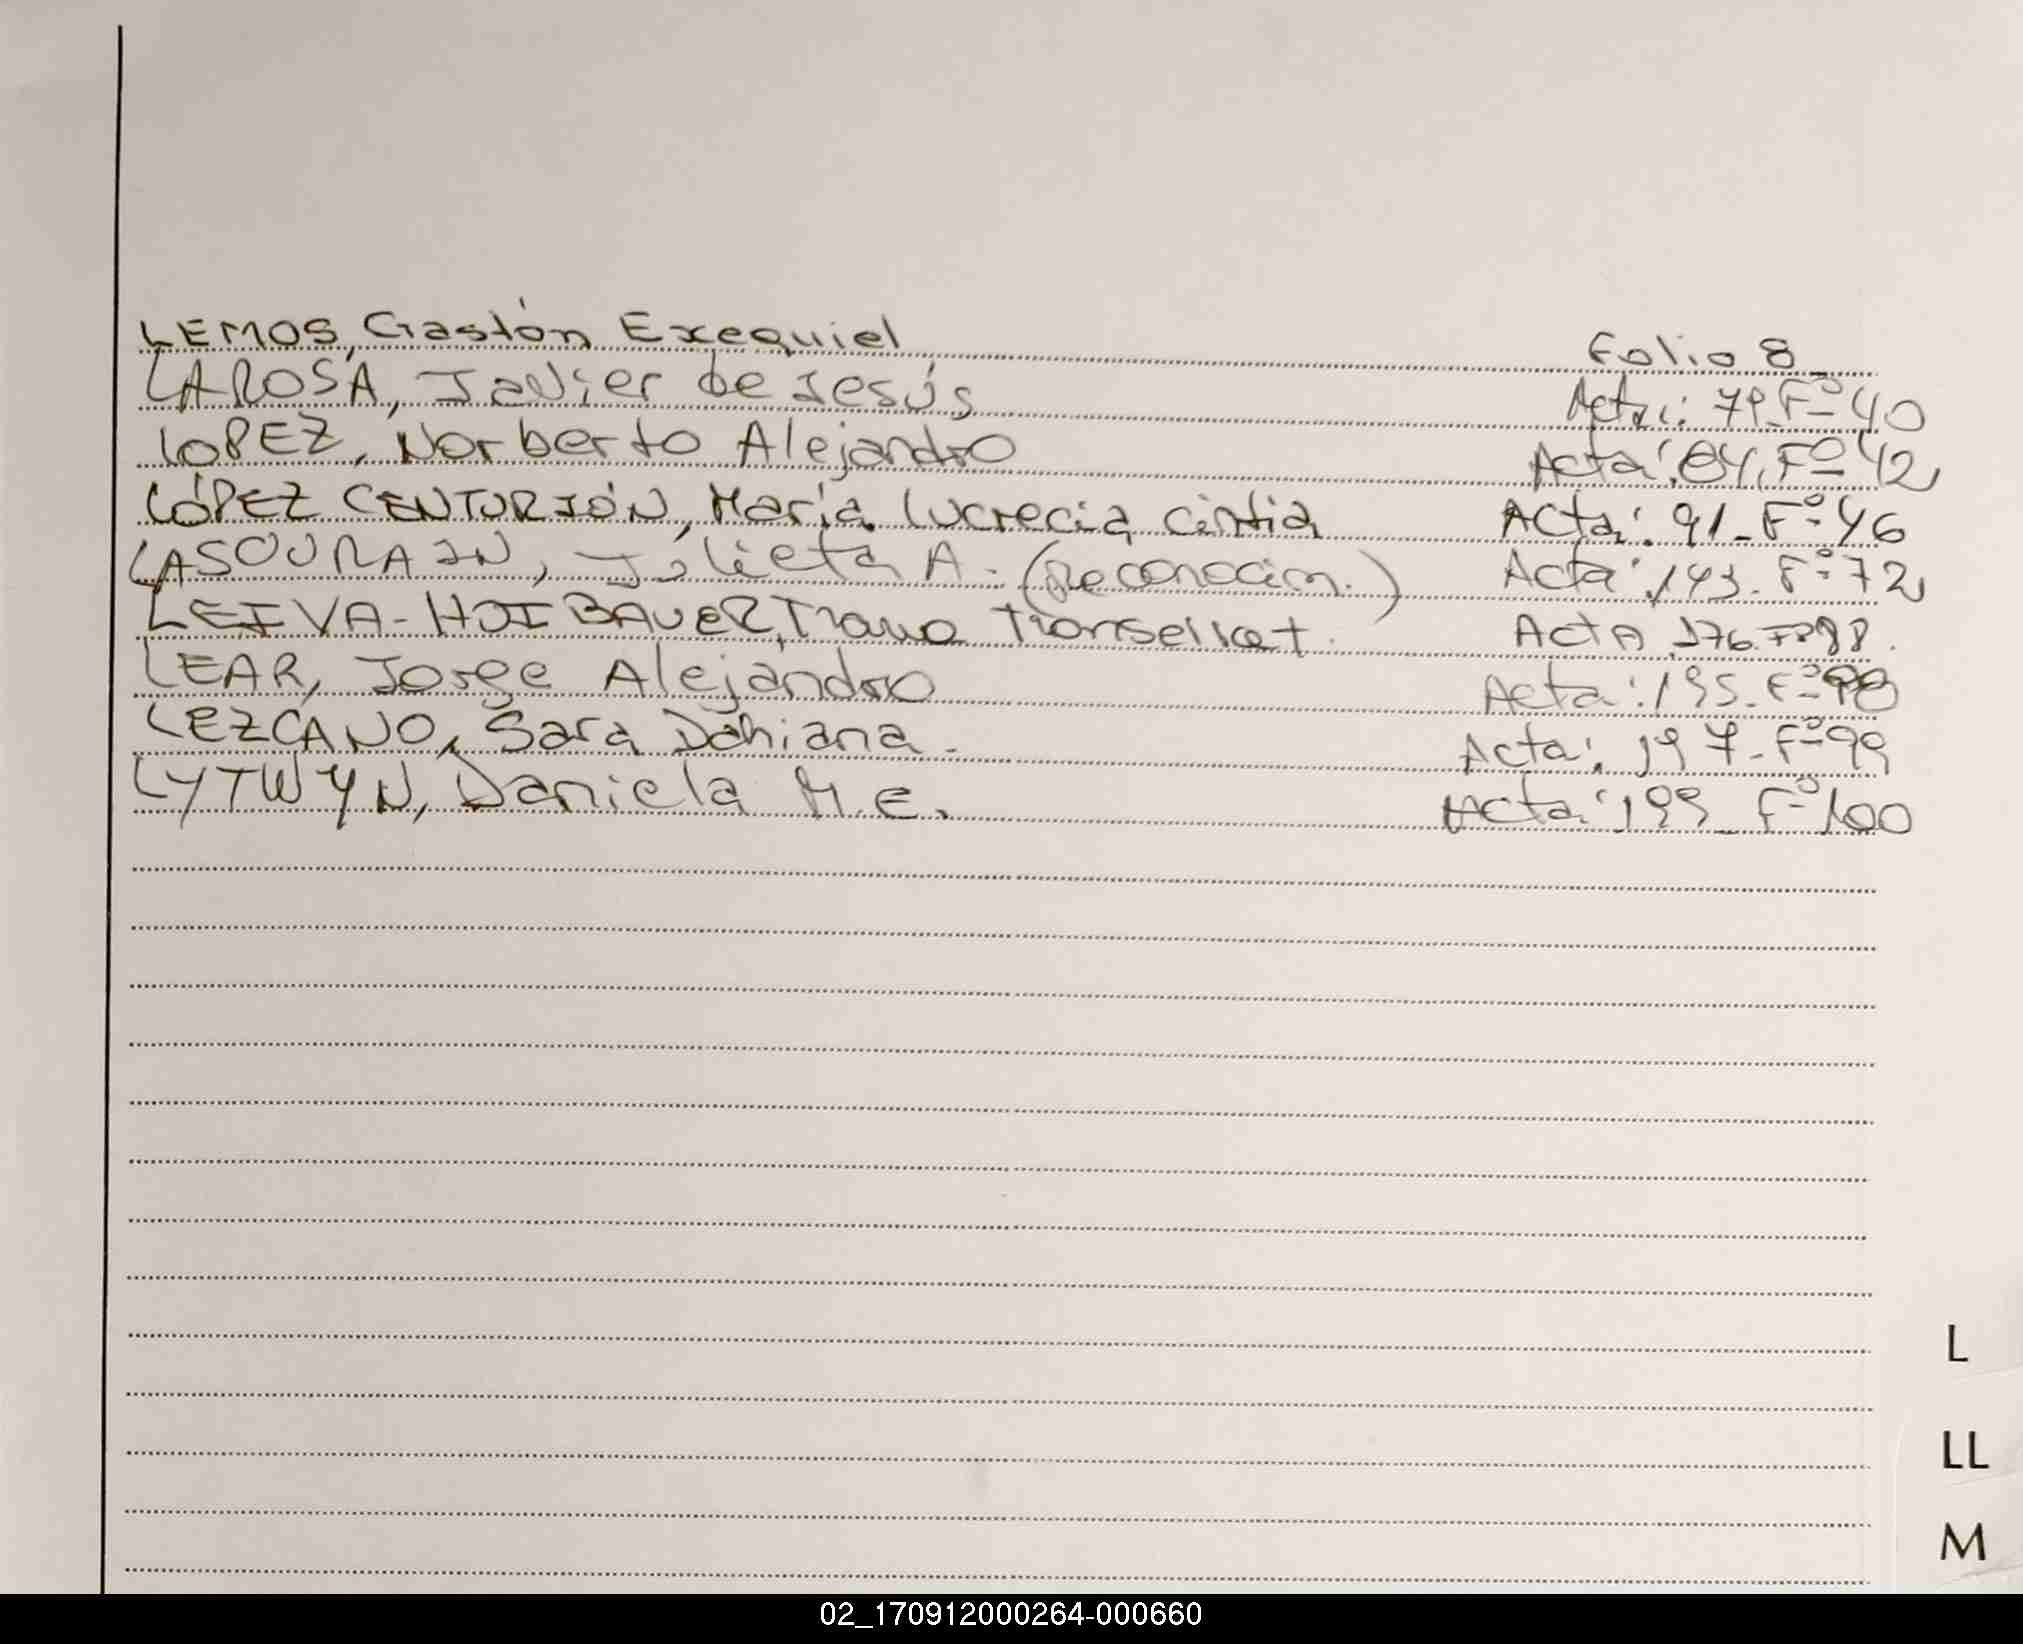 LEMOS, Gastón Exequiel Folio 8
LAROSA, Javier de Jesús Acta: 79. Fº 40
LOPEZ, Norberto Alejandro Acta: 84. Fº 42
LÓPEZ CENTURIÓN, María Lucrecia Cintia Acta: 91 - Fº 46
LASOURAIN, Julieta A. (Reconocim.) Acta: 143 - Fº 72
LEIVA - Acta 176. Fº 88.
LEAR, Jorge Alejandro Acta: 195 - Fº 98
LEZCANO, Sara Dahiana. Acta: 197 - Fº 99
LYTWYN, Daniela M.E. Acta: 199 - Fº 100
L
LL
M
02_170912000264-000660